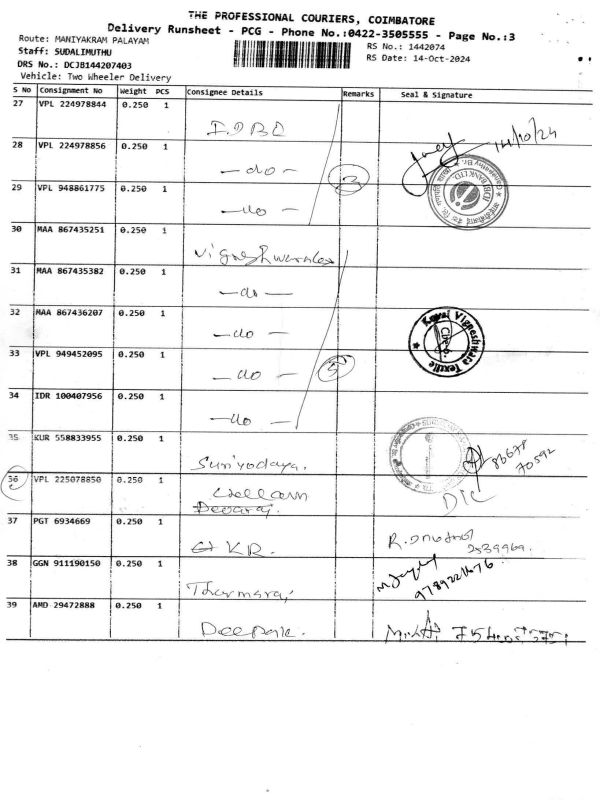 THE PROFESSIONAL COURIERS, COIMBATORE
Delivery Runsheet - PCG - Phone No.:0422-3505555 - Page No.:3
Route: MANIYAKRAM PALAYAM
RS No.: 1442074
Staff: SUDALIMUTHU
RS Date: 14-Oct-2024
DRS No.: DCJB144207403
Vehicle: Two Wheeler Delivery
S No Consignment No Weight PCS Consignee Details Remarks Seal & Signature
27 VPL 224978844 0.250 1 I.D.B.I 14/10/24
28 VPL 224978856 0.250 1 — do — 3
29 VPL 948861775 0.250 1 — do —
30 MAA 867435251 0.250 1 Vigneshwara
31 MAA 867435382 0.250 1 — do —
32 MAA 867436207 0.250 1 — do — Kovai Vigneshwara Textile
33 VPL 949452095 0.250 1 — do — 5
34 IDR 100407956 0.250 1 — do —
35 KUR 558833955 0.250 1 Suriyodaya 86678 70592
36 VPL 225078850 0.250 1 Devaraj D/C
37 PGT 6934669 0.250 1 KR. 2539969
38 GGN 911190150 0.250 1 Tharmaraj
39 AMD 29472888 0.250 1 Deepak